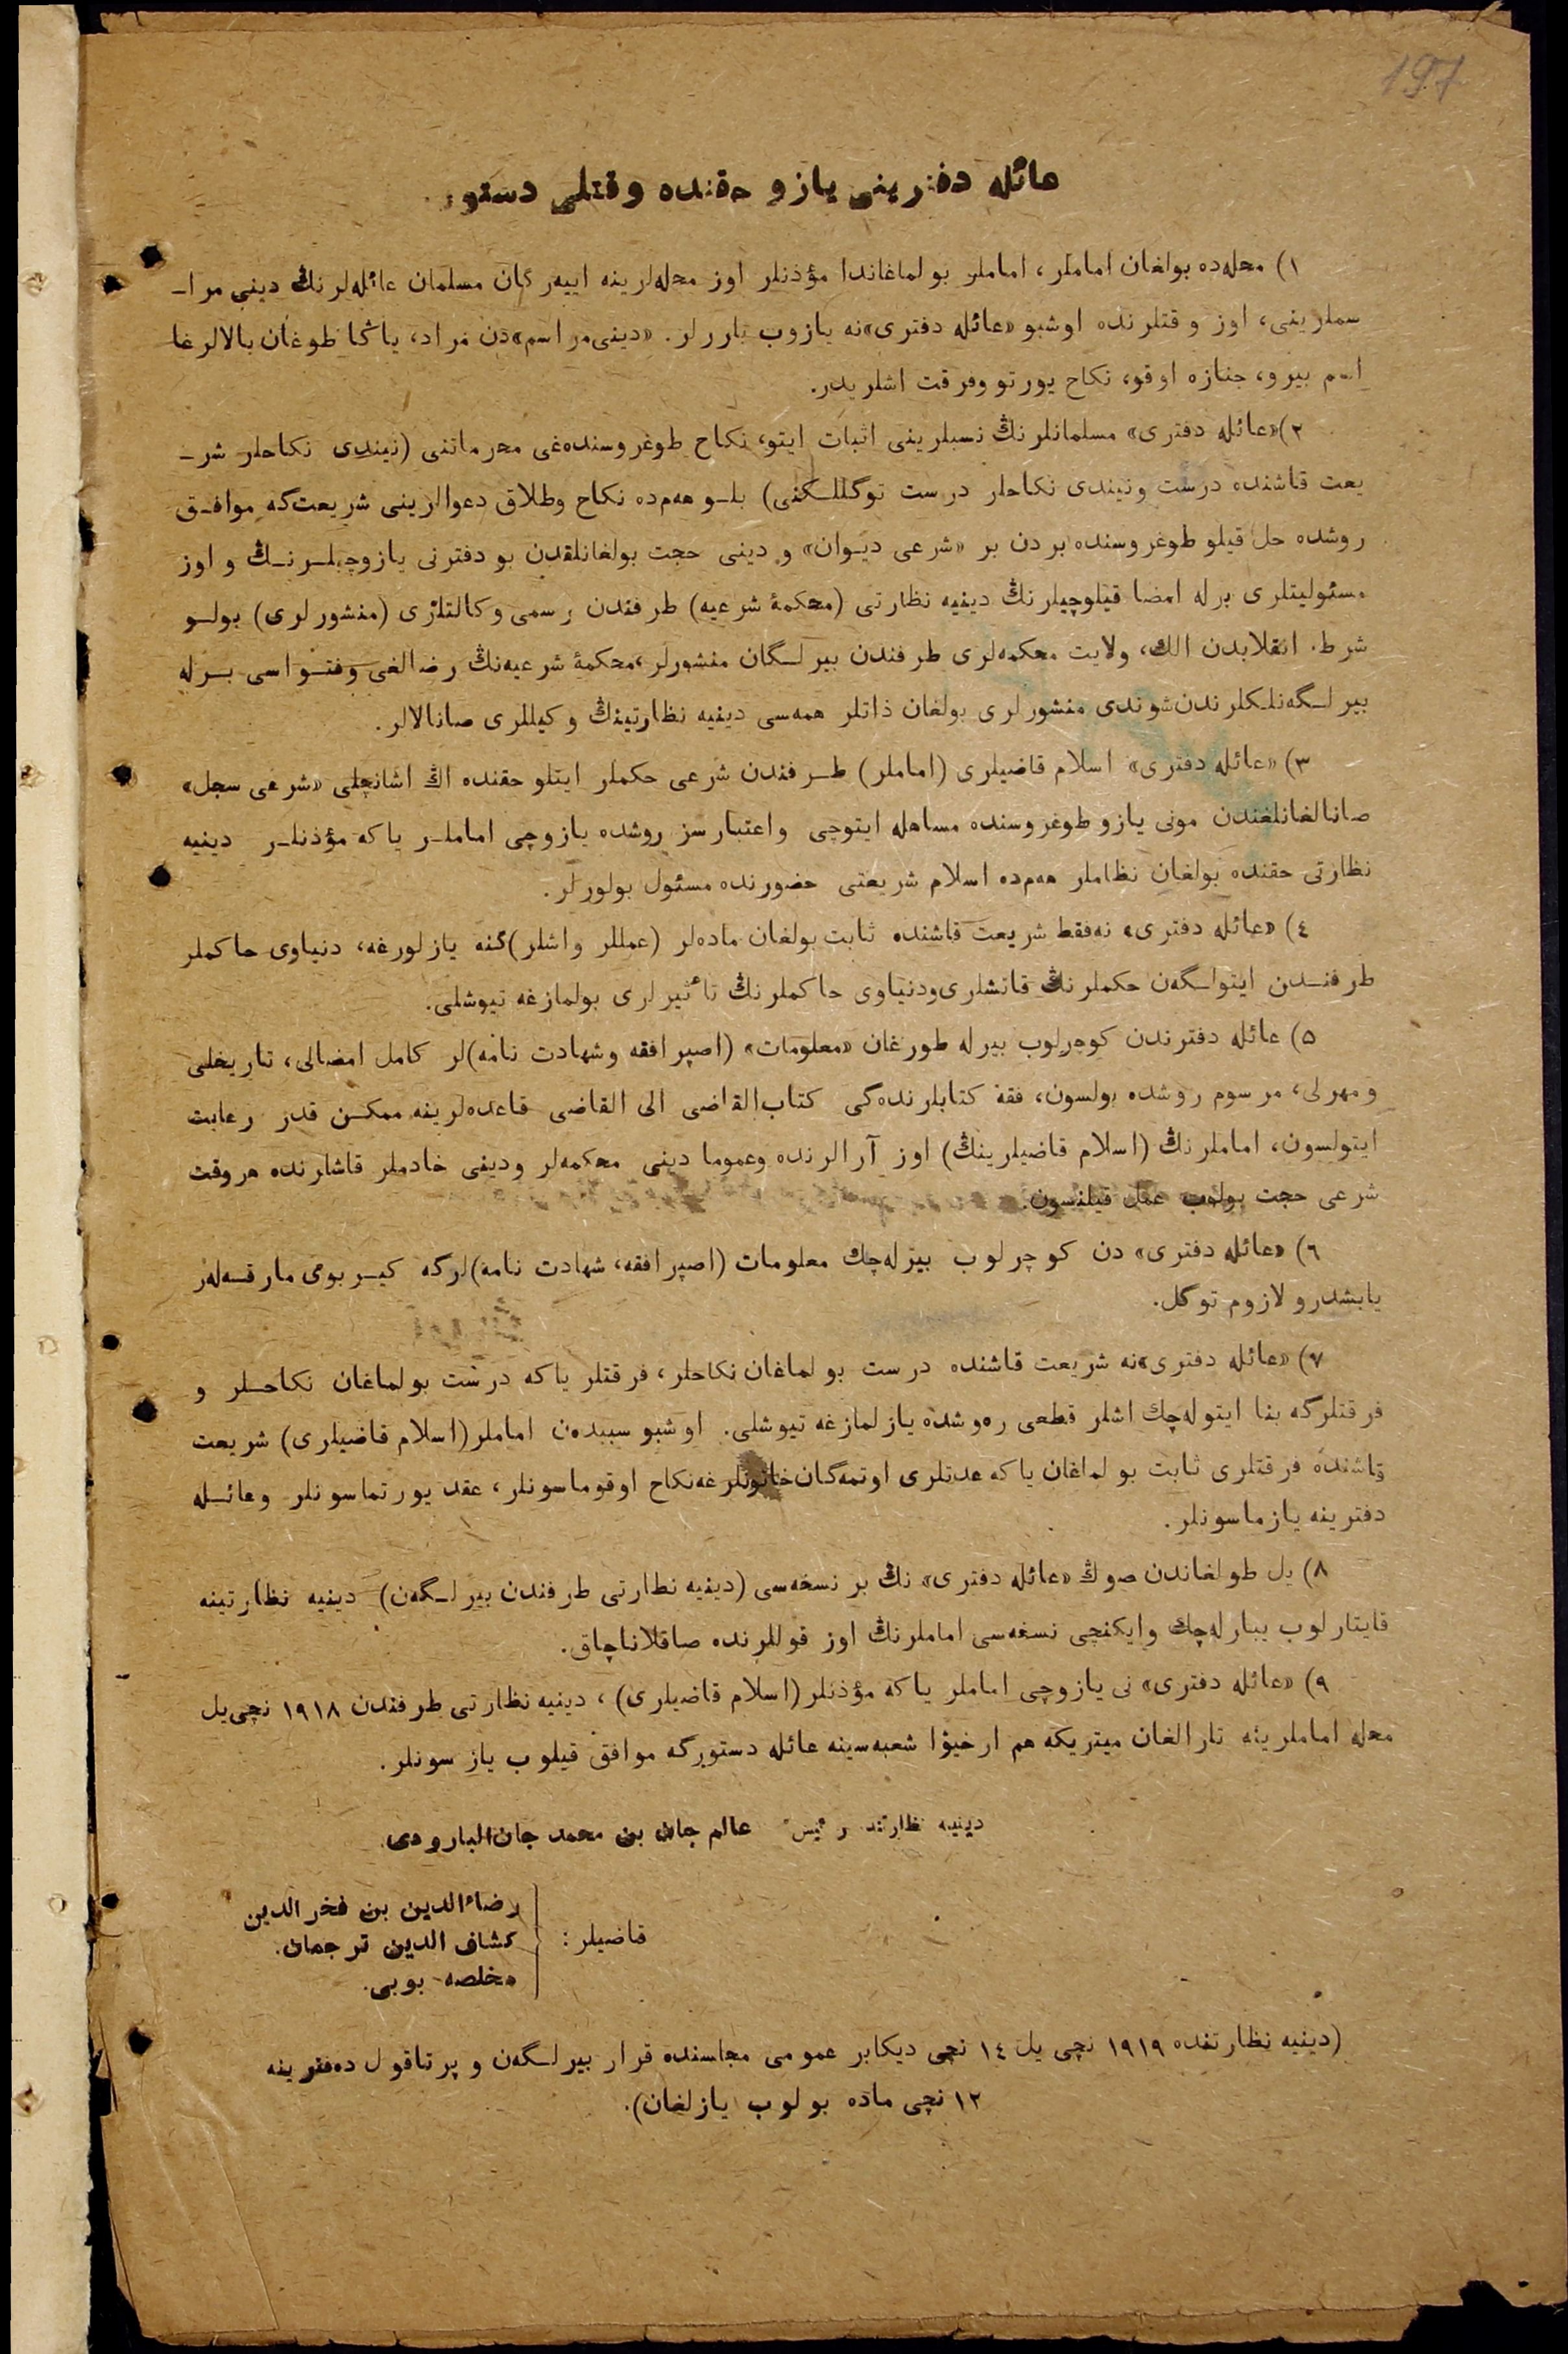 197
عائله دفترینی یازو حقنده وقتلی دستور.
۱) محله‌ده بولغان اماملر، اماملر بولماغاندا مؤذنلر اوز محله‌لرینه اییه‌رگان مسلمان عائله‌لرنڭ دینی مرا-
سملرینی، اوز وقتلرنده اوشبو «عائله دفتری»نه یازوب بارر لر. «دینی مراسم»دن مراد، یاڭا طوغان بالالرغا
اسم بیرو، جنازه اوقو، نکاح یورتو وفرقت اشلریدر.
۲)«عائله دفتری» مسلمانلرنڭ نسبلرینی اثبات ایتو، نکاح طوغروسنده‌غی محرماتنی (نیندی نکاحلر شر-
یعت قاشنده درست ونیندی نکاحلر درست توگللـکنی) بلـو هم‌ده نکاح وطلاق دعوالرینی شریعت‌که موافـق
روشده حل قیلو طوغروسنده بردن بر «شرعی دیوان» و دینی حجت بولغانلقدن بو دفترنی یازوچیلـرنـڭ و اوز
مسئولیتلری برله امضا قیلوچیلرنڭ دینیه نظارتی (محکمۀ شرعیه) طرفندن رسمی وکالتلری (منشورلری) بولـو
شرط. انقلابدن الڭ، ولایت محکمه‌لری طرفندن بیرلـگان منشورلر، محکمۀ شرعیه‌نڭ رضالغی وفتـواسی بـرله
بیرلـگه‌نلـکلرندن شوندی منشورلری بولغان ذاتلر همه‌سی دینیه نظارتینڭ وکیللری صانالالر.
۳) «عائله دفتری» اسلام قاضیلری (اماملر) طـرفندن شرعی حکملر ایتلو حقنده اڭ اشانچلی «شرعی سجل»
صانالغانلغندن مونی یازو طوغروسنده مساهله ایتوچی واعتبارسز روشده یازوچی اماملـر یاکه مؤذنلـر دینیه
نظارتی حقنده بولغان نظاملر هم‌ده اسلام شریعتی حضورنده مسئول بولورلر.
٤) «عائله دفتری» نه‌فقط شریعت قاشنده ثابت بولغان ماده‌لر (عمللر واشلر)گنه یازلورغه، دنیاوی حاکملر
طرفنـدن ایتولـگه‌ن حکملرنڭ قاتشلری‌ودنیاوی حاکملرنڭ تأثیرلری بولمازغه تیوشلی.
۵) عائله دفترندن کوچرلوب بیرله طورغان «معلومات» (اصپرافقه وشهادت نامه)لر کامل امضالی، تاریخلی
ومهرلی، مرسوم روشده بولسون، فقه کتابلرنده‌گی کتاب‌القاضی الی القاضی قاعده‌لرینه ممکـن قدر رعایت
ایتولسون، اماملرنڭ (اسلام قاضیلرینڭ) اوز آرالرنده وعموما دینی محکمه‌لر ودینی خادملر قاشلرنده هروقت
شرعی حجت بولوب عمل قیلنسون.
٦) «عائله دفتری» دن کوچرلوب بیرله‌چك معلومات (اصپرافقه، شهادت نامه)لرگه کیـربوی مارقـه‌لر
یابشدرو لازوم توگل.
۷) «عائله دفتری»نه شریعت قاشنده درست بولماغان نکاحلر، فرقتلر یاکه درست بولماغان نکاحـلر و
فرقتلرگه بنا ایتوله‌چك اشلر قطعی ره‌وشده یازلمازغه تیوشلی. اوشبو سببدەن اماملر(اسلام قاضیلری) شریعت
قاشنده فرقتلری ثابت بولماغان یاکه عدتلری اوتمه‌گان خاتونلرغه نکاح اوقوماسونلر، عقد یورتماسونلر وعائـله
دفترینه یازماسونلر.
۸) یل طولغاندن صوڭ «عائله دفتری» نڭ بر نسخه‌سی (دینیه نظارتی طرفندن بیرلـگه‌ن) دینیه نظارتینه
قایتارلوب یبارله‌چك وایکنچی نسخه‌سی اماملرنڭ اوز قوللرنده صاقلاناچاق.
۹) «عائله دفتری» نی یازوچی اماملر یاکه مؤذنلر(اسلام قاضیلری)، دینیه نظارتی طرفندن ۱۹۱۸ نچی‌یل
محله اماملرینه تارالغان میتریکه هم ارخیوا شعبه‌سینه عائله دستورگه موافق قیلوب یازسونلر.
دینیه نظارتنده رئیس عالم جان بن محمد جان‌البارودی.
قاضیلر:
رضاءالدین بن فخرالدین
کشاف الدین ترجمان.
مخلصه بوبی.
(دینیه نظارتنده ۱۹۱۹ نچی یل ١٤ نچی دیکابر عمومی مجلسنده قرار بیرلـگه‌ن و پرتاقول ده‌فترینه
۱۲ نچی ماده بولوب یازلغان).